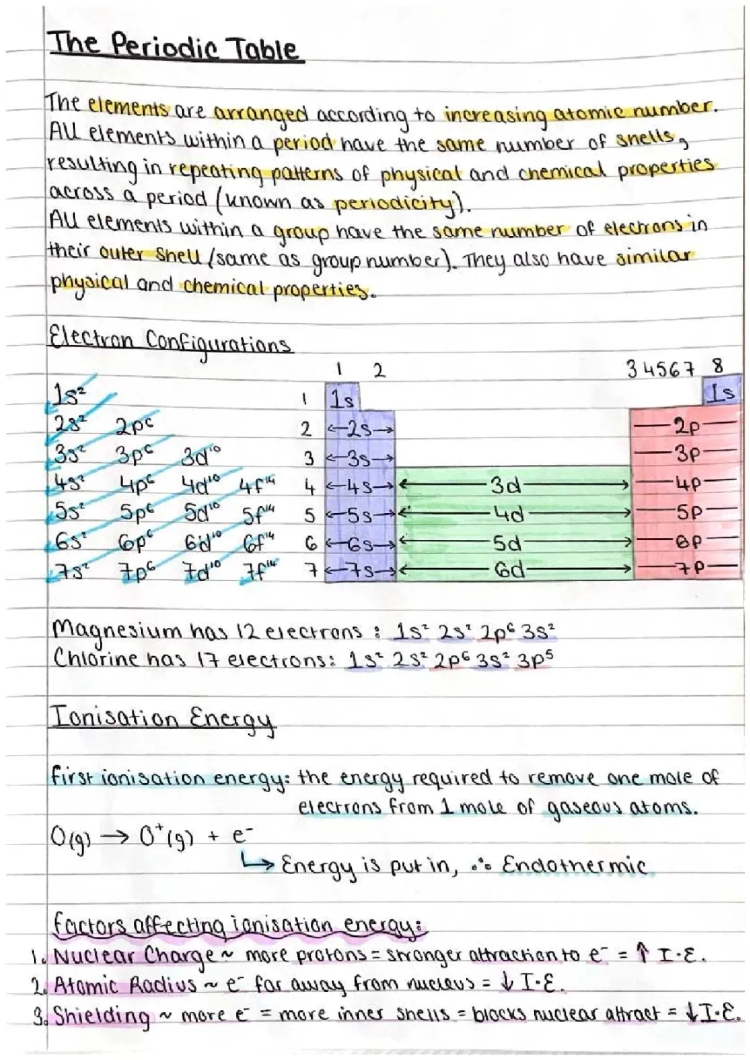 The Periodic Table
The elements are arranged according to increasing atomic number.
All elements within a period have the same number of shells,
resulting in repeating patterns of physical and chemical properties
across a period (known as periodicity).
All elements within a group have the same number of electrons in
their outer shell (same as group number). They also have similar
physical and chemical properties.
Electron Configurations
1s²
2s² 2p⁶
3s² 3p⁶ 3d¹⁰
4s² 4p⁶ 4d¹⁰ 4f¹⁴
5s² 5p⁶ 5d¹⁰ 5f¹⁴
6s² 6p⁶ 6d¹⁰ 6f¹⁴
7s² 7p⁶ 7d¹⁰ 7f¹⁴
1 2 3 4 5 6 7 8
1 1s 1s
2 2s 2p
3 3s 3p
4 4s 3d 4p
5 5s 4d 5p
6 6s 5d 6p
7 7s 6d 7p
Magnesium has 12 electrons : 1s² 2s² 2p⁶ 3s²
Chlorine has 17 electrons: 1s² 2s² 2p⁶ 3s² 3p⁵
Ionisation Energy
first ionisation energy: the energy required to remove one mole of
electrons from 1 mole of gaseous atoms.
O(g) → O⁺(g) + e⁻
↳ Energy is put in, ∴ Endothermic
factors affecting ionisation energy:
1. Nuclear Charge ~ more protons = stronger attraction to e⁻ = ↑ I.E.
2. Atomic Radius ~ e⁻ far away from nucleus = ↓ I.E.
3. Shielding ~ more e⁻ = more inner shells = blocks nuclear attract = ↓ I.E.